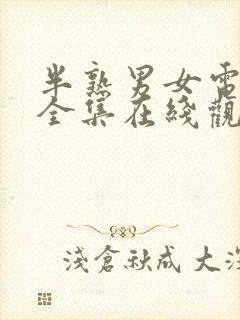 半熟男女電
全集在綫觀
淺倉秋成 大深